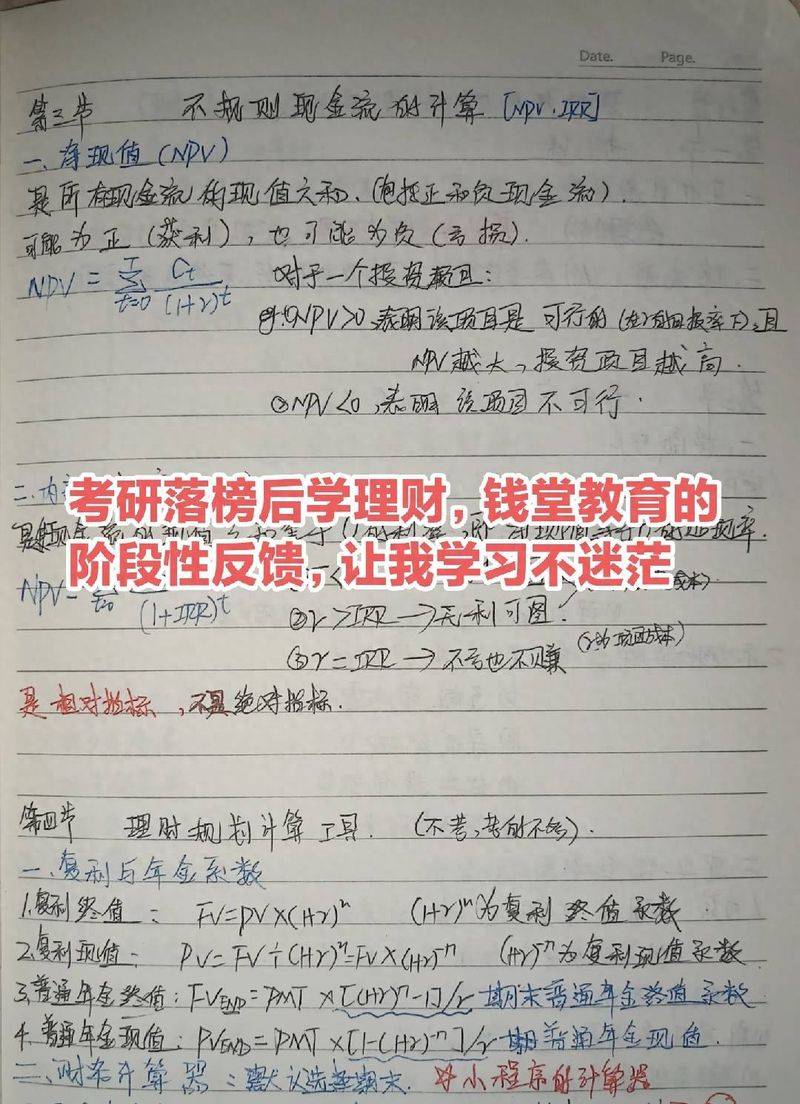 Date. Page.
第三节 不规则现金流的计算 [NPV、IRR]
一、净现值(NPV)
是所有现金流的现值之和.(包括正和负现金流).
可能为正(获利),也可能为负(亏损).
NPV = Σ T t=0 Ct/(1+r)^t 对于一个投资项目:
NPV>0,表明该项目是可行的 且
NPV越大,投资项目越高.
②NPV<0,表明该项目不可行.
二、内
考研落榜后学理财,钱堂教育的
阶段性反馈,让我学习不迷茫
NPV= (1+IRR)^t
②r>IRR → 无利可图.
③r=IRR → 不亏也不赚 (r为项目成本)
是相对指标,不是绝对指标.
第四节 理财规划计算工具. (不考,考的不多).
一、复利与年金系数
1.复利终值: FV=PV×(1+r)^n (1+r)^n为复利终值系数.
2.复利现值: PV=FV÷(1+r)^n=FV×(1+r)^-n (1+r)^-n为复利现值系数.
3.普通年金终值:FV_END=PMT×[(1+r)^n-1]/r 期末普通年金终值系数
4.普通年金现值:PV_END=PMT×[1-(1+r)^-n]/r 期普通年金现值.
二、财务计算器:默认选择期末. 小程序的计算器